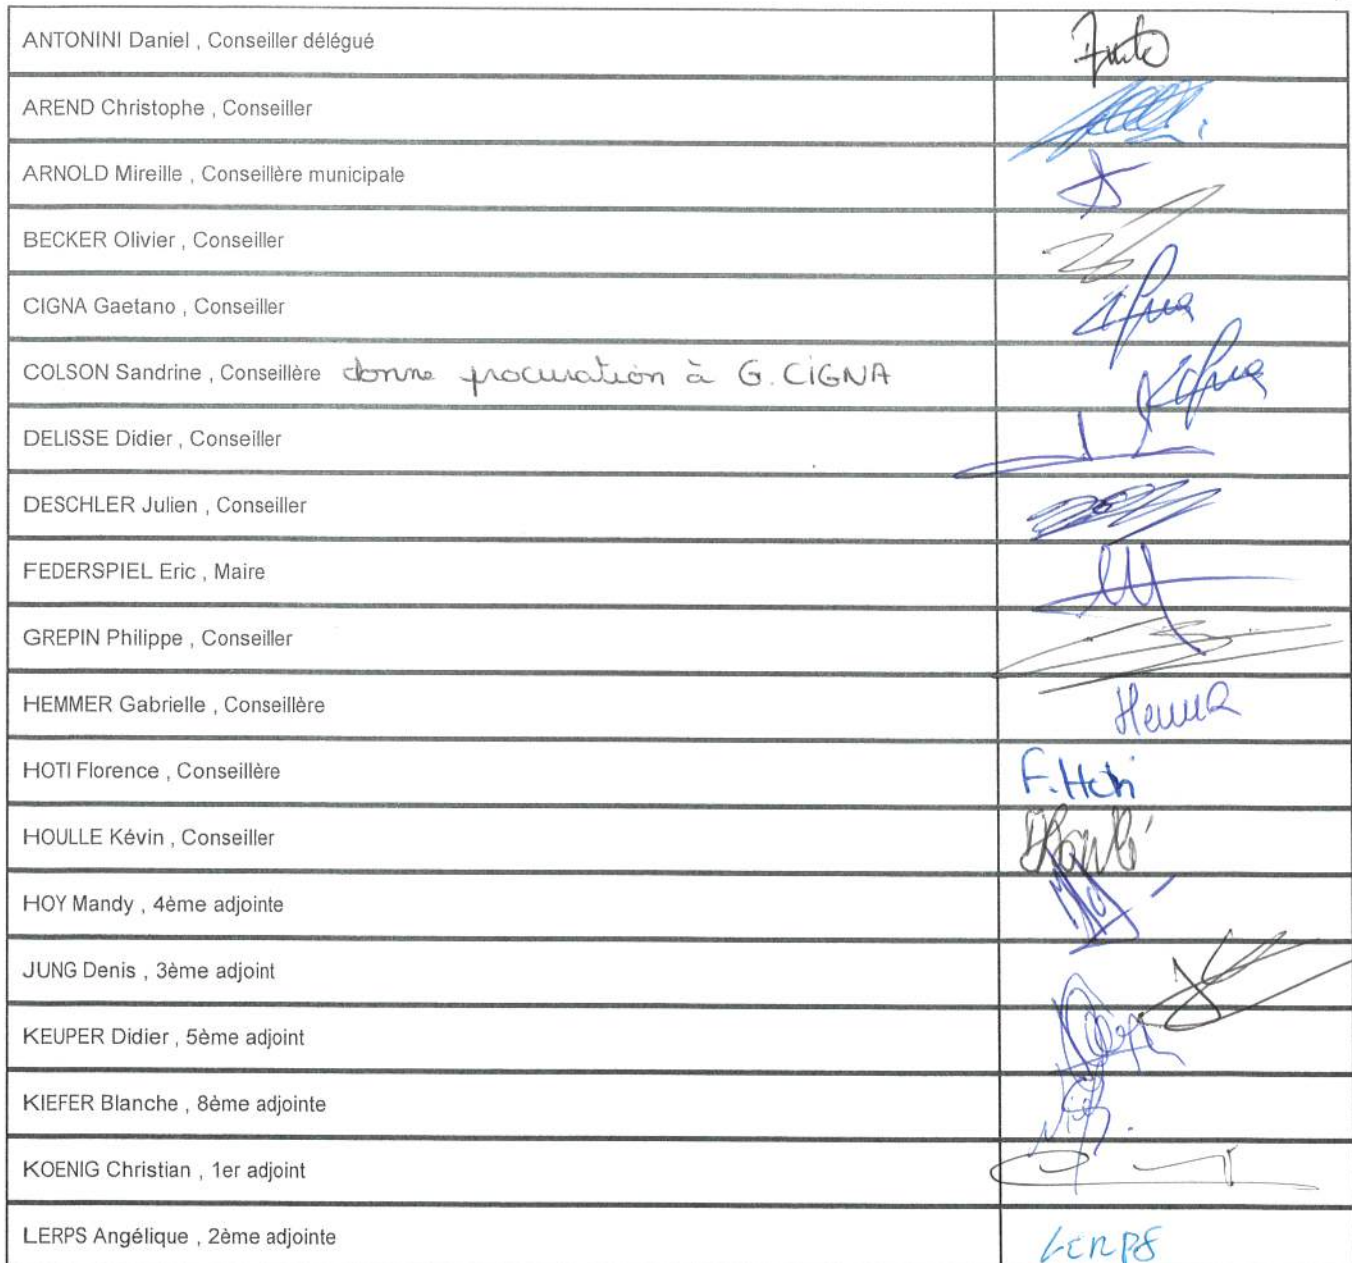 ANTONINI Daniel , Conseiller délégué
AREND Christophe , Conseiller
ARNOLD Mireille , Conseillère municipale
BECKER Olivier , Conseiller
CIGNA Gaetano , Conseiller
COLSON Sandrine , Conseillère donne procuration à G. CIGNA
DELISSE Didier , Conseiller
DESCHLER Julien , Conseiller
FEDERSPIEL Eric , Maire
GREPIN Philippe , Conseiller
HEMMER Gabrielle , Conseillère
HOTI Florence , Conseillère F. Hoti
HOULLE Kévin , Conseiller
HOY Mandy , 4ème adjointe
JUNG Denis , 3ème adjoint
KEUPER Didier , 5ème adjoint
KIEFER Blanche , 8ème adjointe
KOENIG Christian , 1er adjoint
LERPS Angélique , 2ème adjointe LERPS